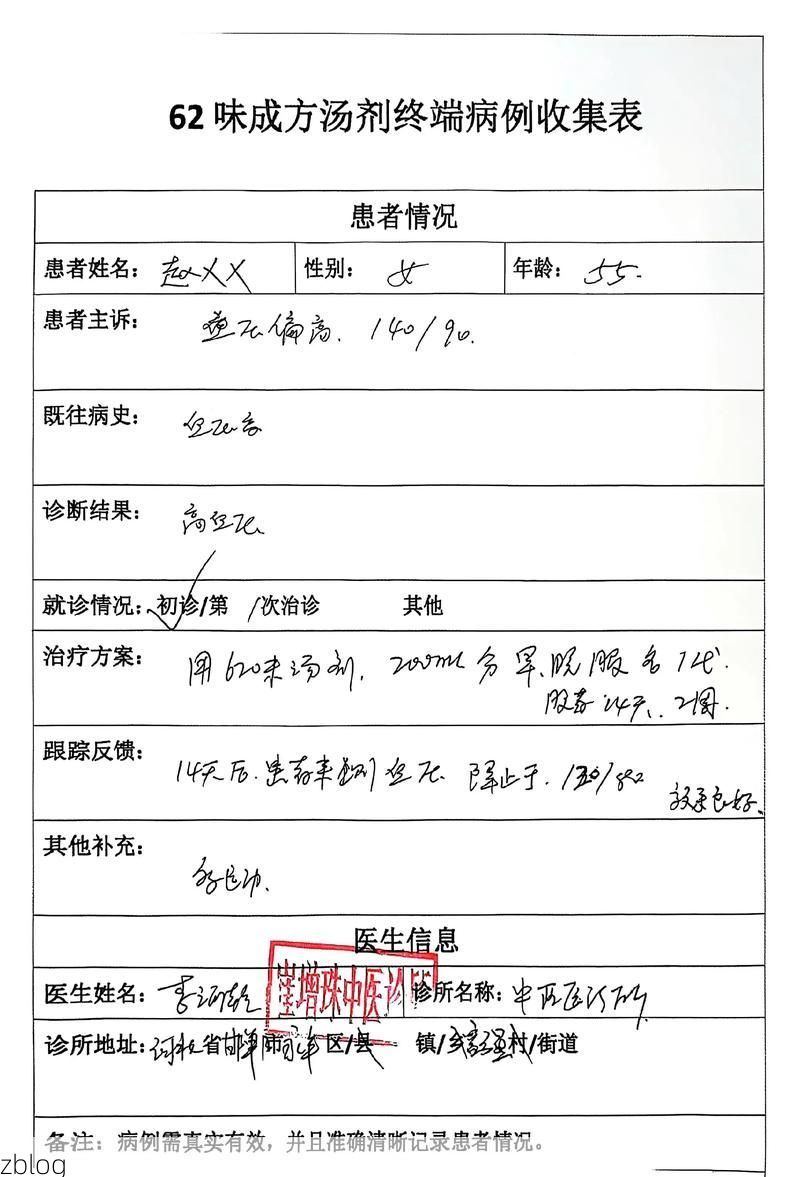 62味成方汤剂终端病例收集表
患者情况
患者姓名: 赵XX 性别: 女 年龄: 55.
患者主诉: 血压偏高. 140/90.
既往病史: 血压高
诊断结果: 高血压
就诊情况: 初诊/第 /次治诊 其他
治疗方案: 用620味汤剂, 200ml 分早、晚服各1代.
服药14天、2周.
跟踪反馈: 14天后. 患者来 血压
效果良好.
其他补充:
医生信息
医生姓名: 李 诊所名称: 中医
崔增珠中医诊所
诊所地址: 河北省邯郸市 区/县 镇/乡 村/街道
备注: 病例需真实有效,并且准确清晰记录患者情况。
zblog